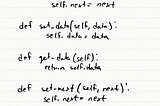 self.next = next
def set_data(self, data):
self.data = data
def get_data(self):
return self.data
def set_next(self, next):
self.next = next